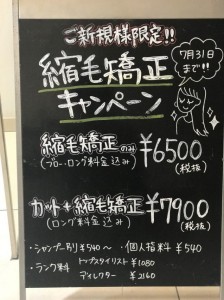 ご新規様限定!!
縮毛矯正
キャンペーン
7月31日
まで!!
縮毛矯正のみ
(ブロー、ロング料金込み)
¥6500
(税抜)
カット+縮毛矯正
(ロング料金込み)
¥7900
(税抜)
・シャンプー別¥540〜 ・個人指料¥540
・ランク料 トップスタイリスト ¥1080
ディレクター ¥2160